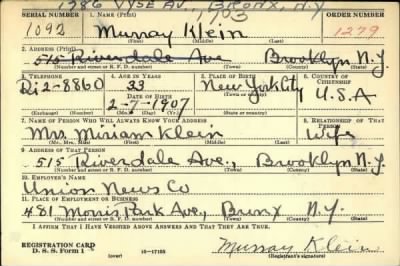 1986 VYSE AV., BRONX, N.Y
1903
SERIAL NUMBER 1. NAME (Print) ORDER NUMBER
1092 Murray Klein 1279
(First) (Middle) (Last)
2. ADDRESS (Print)
515 Riverdale Ave Brooklyn N.Y.
(Number and street or R. F. D. number) (Town) (County) (State)
3. TELEPHONE 4. AGE IN YEARS 5. PLACE OF BIRTH 6. COUNTRY OF CITIZENSHIP
Di 2-8860 33 New York City U.S.A
DATE OF BIRTH
2-7-1907
(Exchange) (Number) (Mo.) (Day) (Yr.) (Town or county) (State or country)
7. NAME OF PERSON WHO WILL ALWAYS KNOW YOUR ADDRESS 8. RELATIONSHIP OF THAT PERSON
Mrs. Miriam Klein Wife
(Mr., Mrs., Miss) (First) (Middle) (Last)
9. ADDRESS OF THAT PERSON
515 Riverdale Ave., Brooklyn N.Y.
(Number and street or R. F. D. number) (Town) (County) (State)
10. EMPLOYER'S NAME
Union News Co
11. PLACE OF EMPLOYMENT OR BUSINESS
481 Morris Park Ave., Bronx N.Y.
(Number and street or R. F. D. number) (Town) (County) (State)
I AFFIRM THAT I HAVE VERIFIED ABOVE ANSWERS AND THAT THEY ARE TRUE.
REGISTRATION CARD
D. S. S. Form 1 (over) 16-17105 Murray Klein
(Registrant's signature)